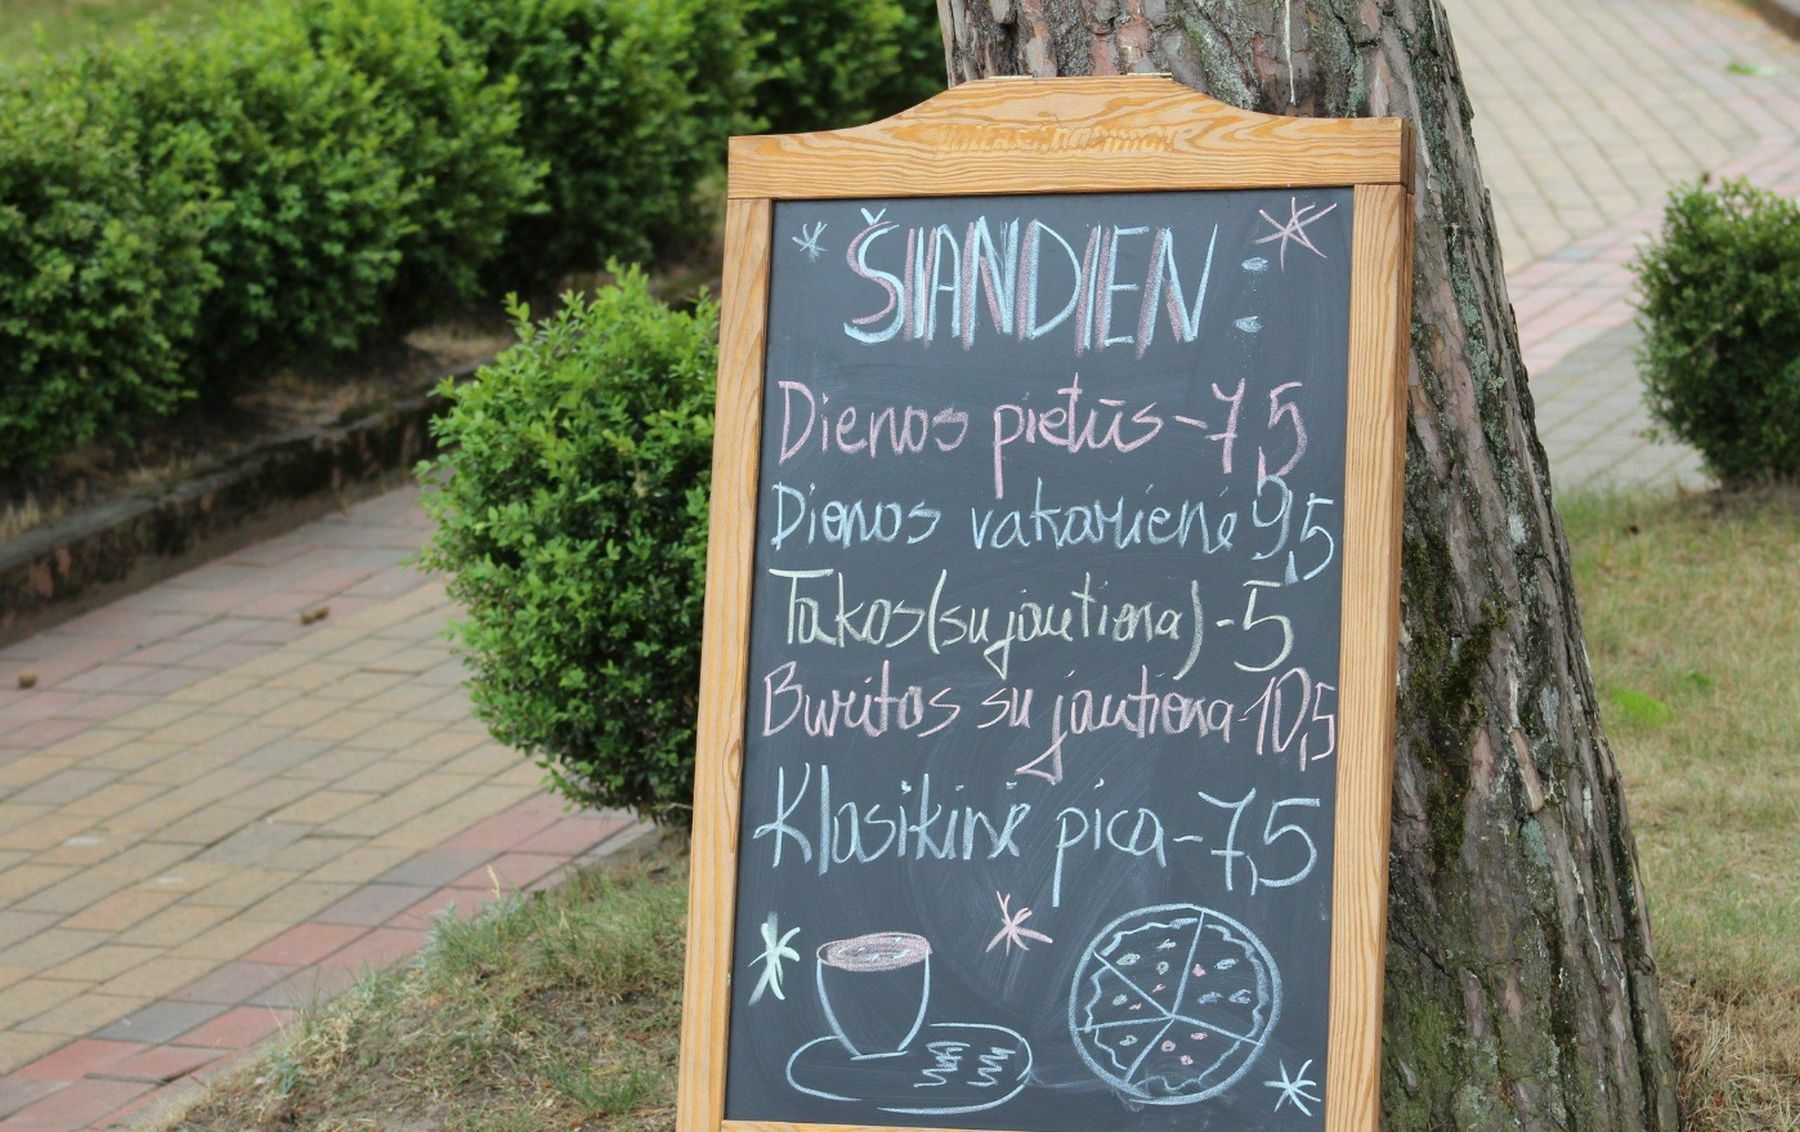 ŠIANDIEN :
Dienos pietūs - 7,5
Dienos vakarienė 9,5
Takos (su jautiena) - 5
Buritos su jautiena - 10,5
Klasikinė pica - 7,5